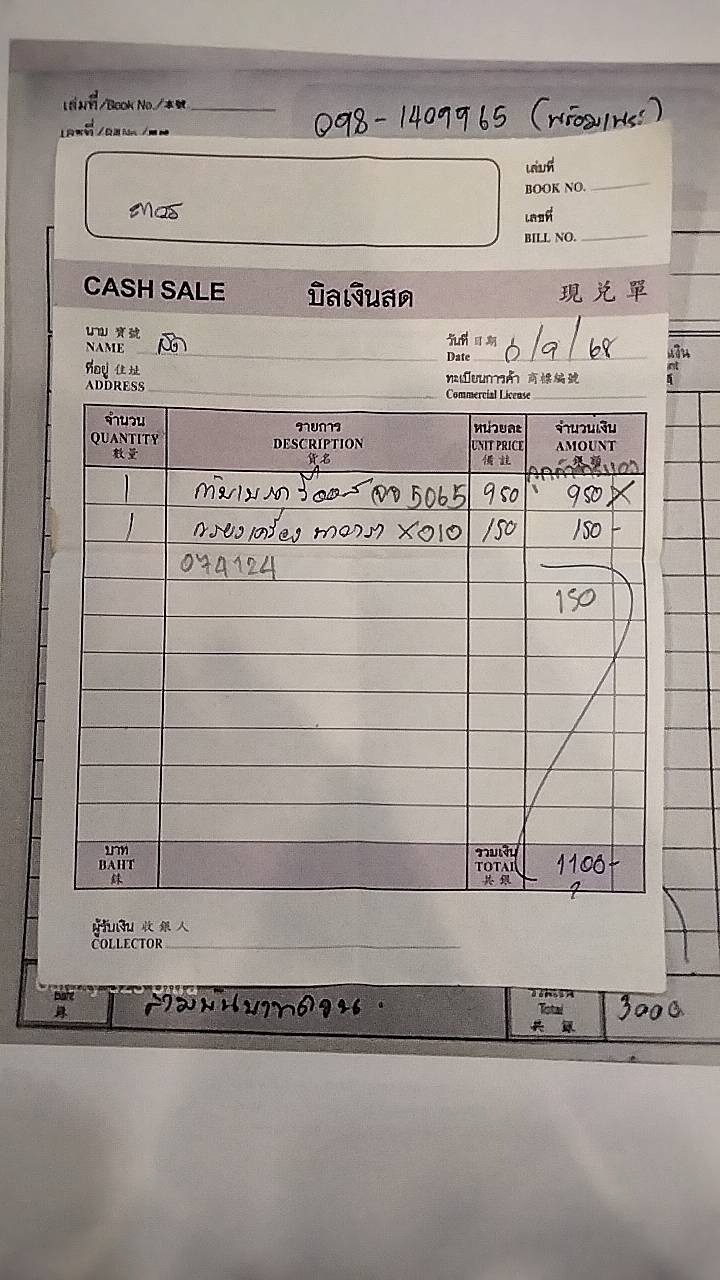 เล่มที่/Book No./本號
098-1409965 (พร้อมเพระ)
เล่มที่
BOOK NO.
เลขที่
BILL NO.
CASH SALE บิลเงินสด 現兌單
นาม 寶號
NAME สด
วันที่ 日期
Date 6/9/68
ที่อยู่ 住址
ADDRESS
ทะเบียนการค้า 商標編號
Commercial License
จำนวน รายการ หน่วยละ จำนวนเงิน
QUANTITY DESCRIPTION UNIT PRICE AMOUNT
數量 貨名 備註 銀額
1 5065 950 950 X
1 กรองเครื่อง X010 150 150 -
074124
150
บาท
BAHT
銖
รวมเงิน
TOTAL 1100-
共銀
?
ผู้รับเงิน 收銀人
COLLECTOR
Baht สามพันบาทถ้วน Total 3000
銖 共 銀